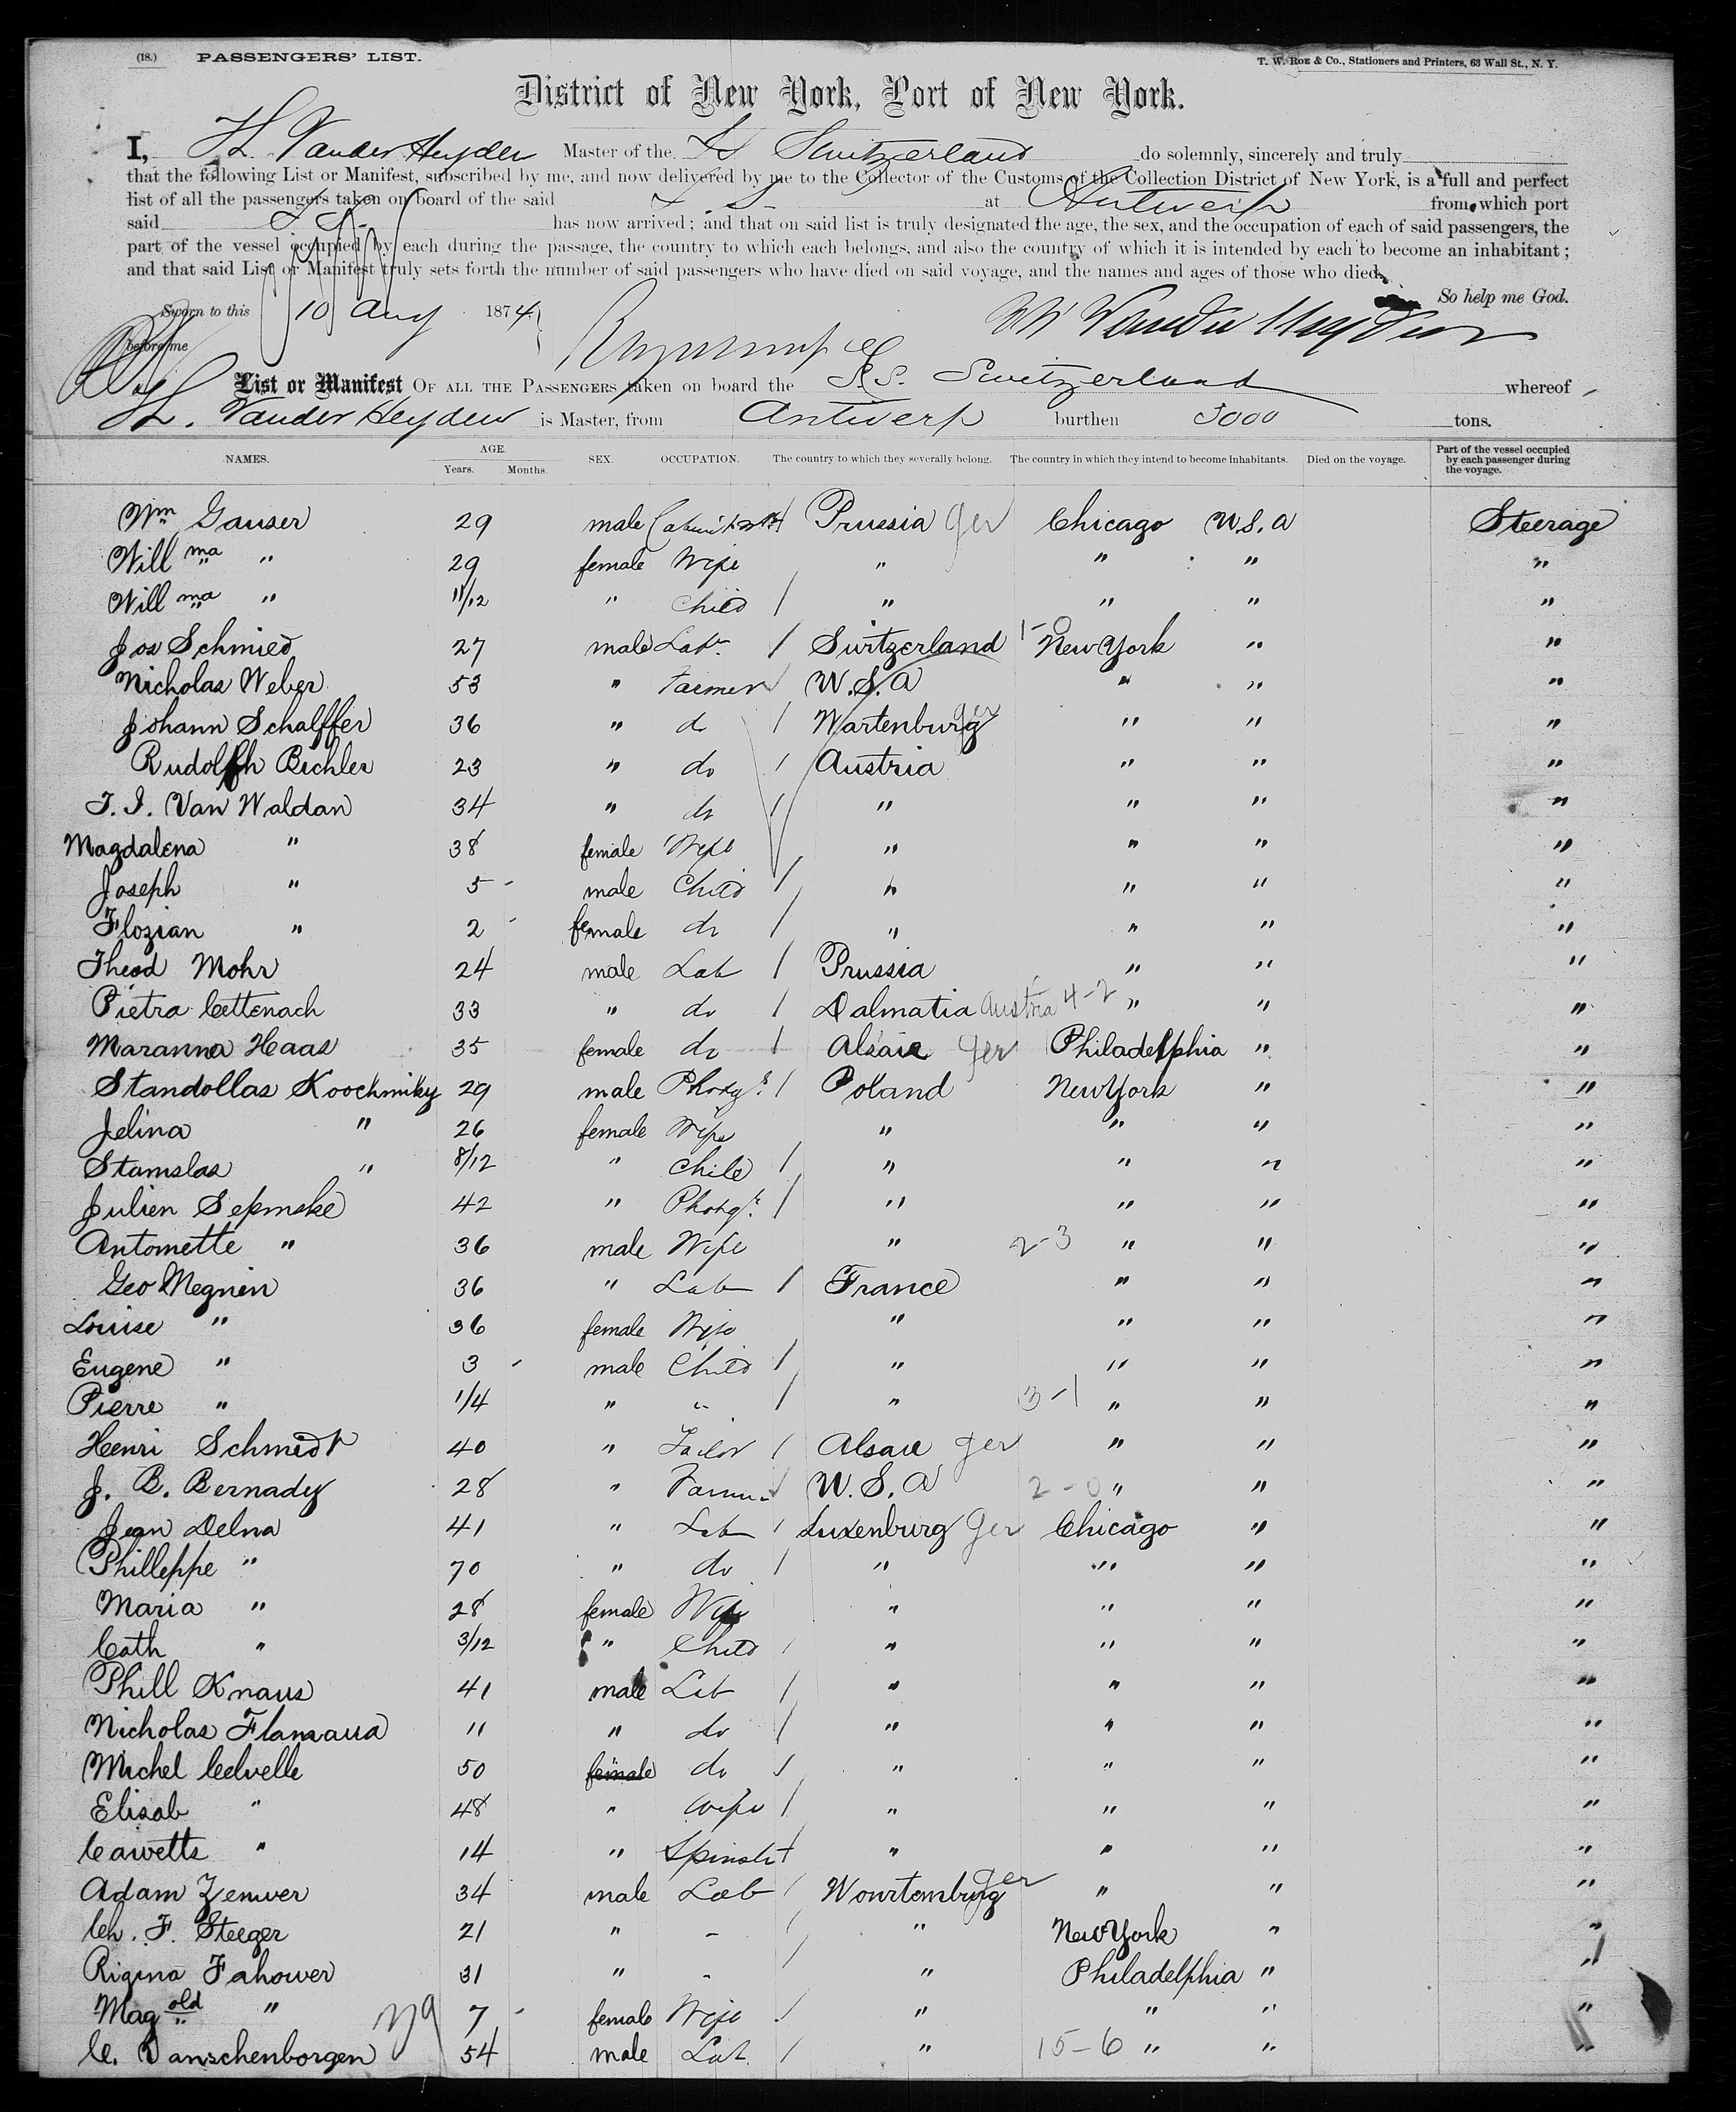 (18.) PASSENGERS' LIST. T. W. ROE & Co., Stationers and Printers, 63 Wall St., N. Y.
District of New York, Port of New York.
I, H. Vander Heyden Master of the Ss Switzerland do solemnly, sincerely and truly
that the following List or Manifest, subscribed by me, and now delivered by me to the Collector of the Customs of the Collection District of New York, is a full and perfect
list of all the passengers taken on board of the said S.S. at Antwerp from which port
said S.S. has now arrived; and that on said list is truly designated the age, the sex, and the occupation of each of said passengers, the
part of the vessel occupied by each during the passage, the country to which each belongs, and also the country of which it is intended by each to become an inhabitant;
and that said List or Manifest truly sets forth the number of said passengers who have died on said voyage, and the names and ages of those who died.
So help me God.
Sworn to this 10 Aug 1874
before me
List or Manifest OF ALL THE PASSENGERS taken on board the S.s. Switzerland whereof
H. Vander Heyden is Master, from Antwerp burthen 3000 tons.
NAMES. AGE. Years. Months. SEX. OCCUPATION. The country to which they severally belong. The country in which they intend to become inhabitants. Died on the voyage. Part of the vessel occupied by each passenger during the voyage.
Wm Gauser 29 male Prussia Ger Chicago U.S.A Steerage
Will ma " 29 female Wife " " " "
Will ma " 11/12 " Child / " " " "
Jos Schmied 27 male Labr. / Switzerland 1-0 New York " "
Nicholas Weber 53 " Farmer U.S.A " " "
Johann Schalffer 36 " do / Wartenburg Ger " " "
Rudolph Bichler 23 " do / Austria " " "
T. I. Van Waldan 34 " do / " " " "
Magdalena " 38 female Wife " " " "
Joseph " 5 - male Child / " " " "
Flozian " 2 - female do / " " " "
Theod Mohr 24 male Lab / Prussia " " "
Pietra Cettenach 33 " do / Dalmatia Austria 4-2 " " "
Maranna Haas 35 female do / Alsace Ger Philadelphia " "
Standollas Koochmiky 29 male Photogr. / Poland New York " "
Jelina " 26 female Wife " " " "
Stamslas " 8/12 " Child / " " " "
Julien Sepmske 42 " Photogr. / " " " "
Antomette " 36 male Wife " 2-3 " " "
Geo Megnien 36 " Lab / France " " "
Louise " 36 female Wife " " " "
Eugene " 3 - male Child / " " " "
Pierre " 1/4 " " / " 3-1 " " "
Henri Schmidt 40 " Tailor / Alsace Ger " " "
J. B. Bernady 28 " Farmer U.S.A 2-0 " " "
Jean Delna 41 " Lab / Luxenburg Ger Chicago " "
Philleppe " 70 " do / " " " "
Maria " 28 female Wife " " " "
Cath " 3/12 " Child / " " " "
Phill Knaus 41 male Lab / " " " "
Nicholas Flamaua 11 " do / " " " "
Michel Celvelle 50 female do / " " " "
Elisab " 48 " Wife / " " " "
Cawetts " 14 " Spinstr / " " " "
Adam Zemver 34 male Lab / Wourtemburg Ger " " "
Ch. F. Steeger 21 " - / " New York " "
Rigina Fahower 31 " - / " Philadelphia " "
Mag old " 7 - female Wife / " " " "
C. Vanschenborgen 54 male Lab / " 15-6 " " "